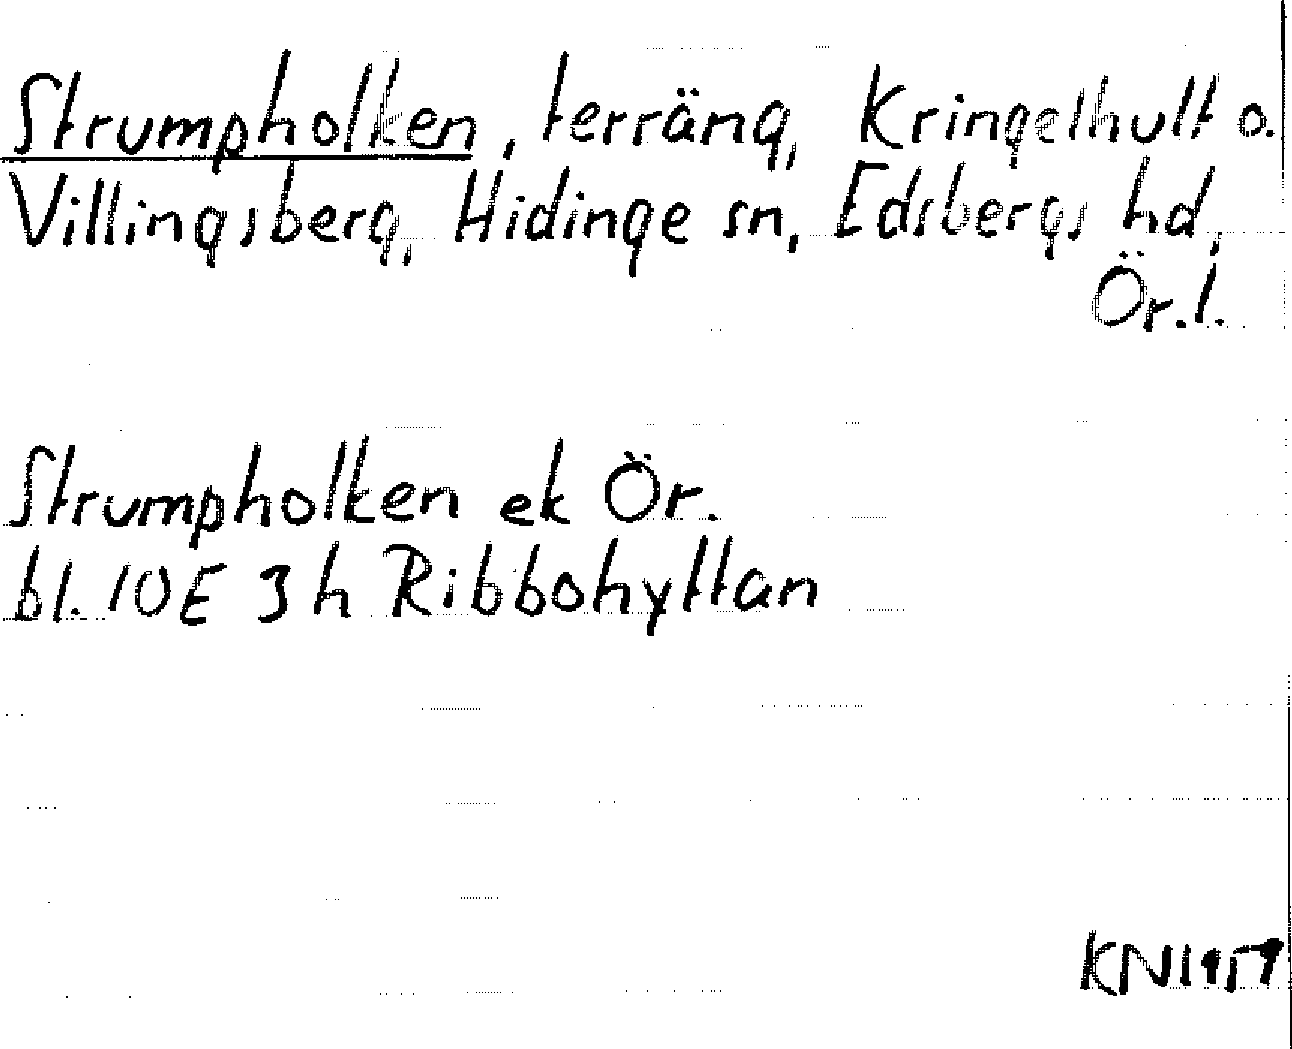 Strumpholken, terräng, Kringelhult o.
Villingsberg, Hidinge sn, Edsbergs hd,
Ör.l.
Strumpholken ek Ör.
bl. 10E 3h Ribbohyttan